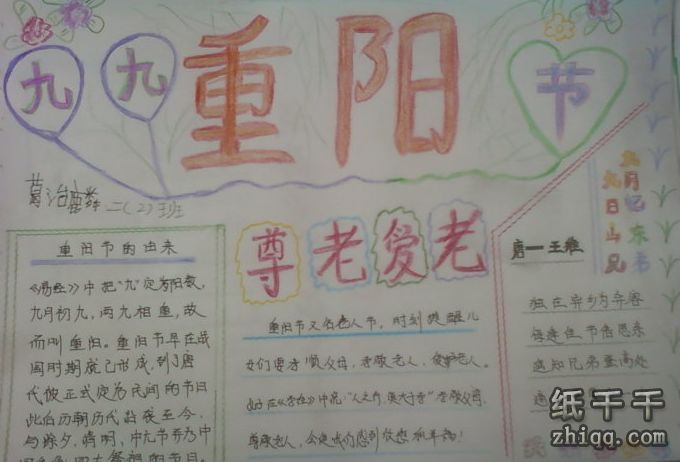 九九重阳节
二(2)班
重阳节的由来
《易经》中把"九"定为阳数,
九月初九,两九相重,故
而叫重阳。重阳节早在战
国时期就已形成,到了唐
代被正式定为民间的节日
此后历朝历代沿袭至今,
与除夕、清明、中九节
尊老爱老
重阳节又名老人节,时刻提醒儿
女们要孝顺父母,孝敬老人,爱护老人。
孝敬父母,
尊敬老人,
九月九日
忆山东兄弟
唐——王维
独在异乡为异客
每逢佳节倍思亲
遥知兄弟登高处
纸千千
zhiqq.com